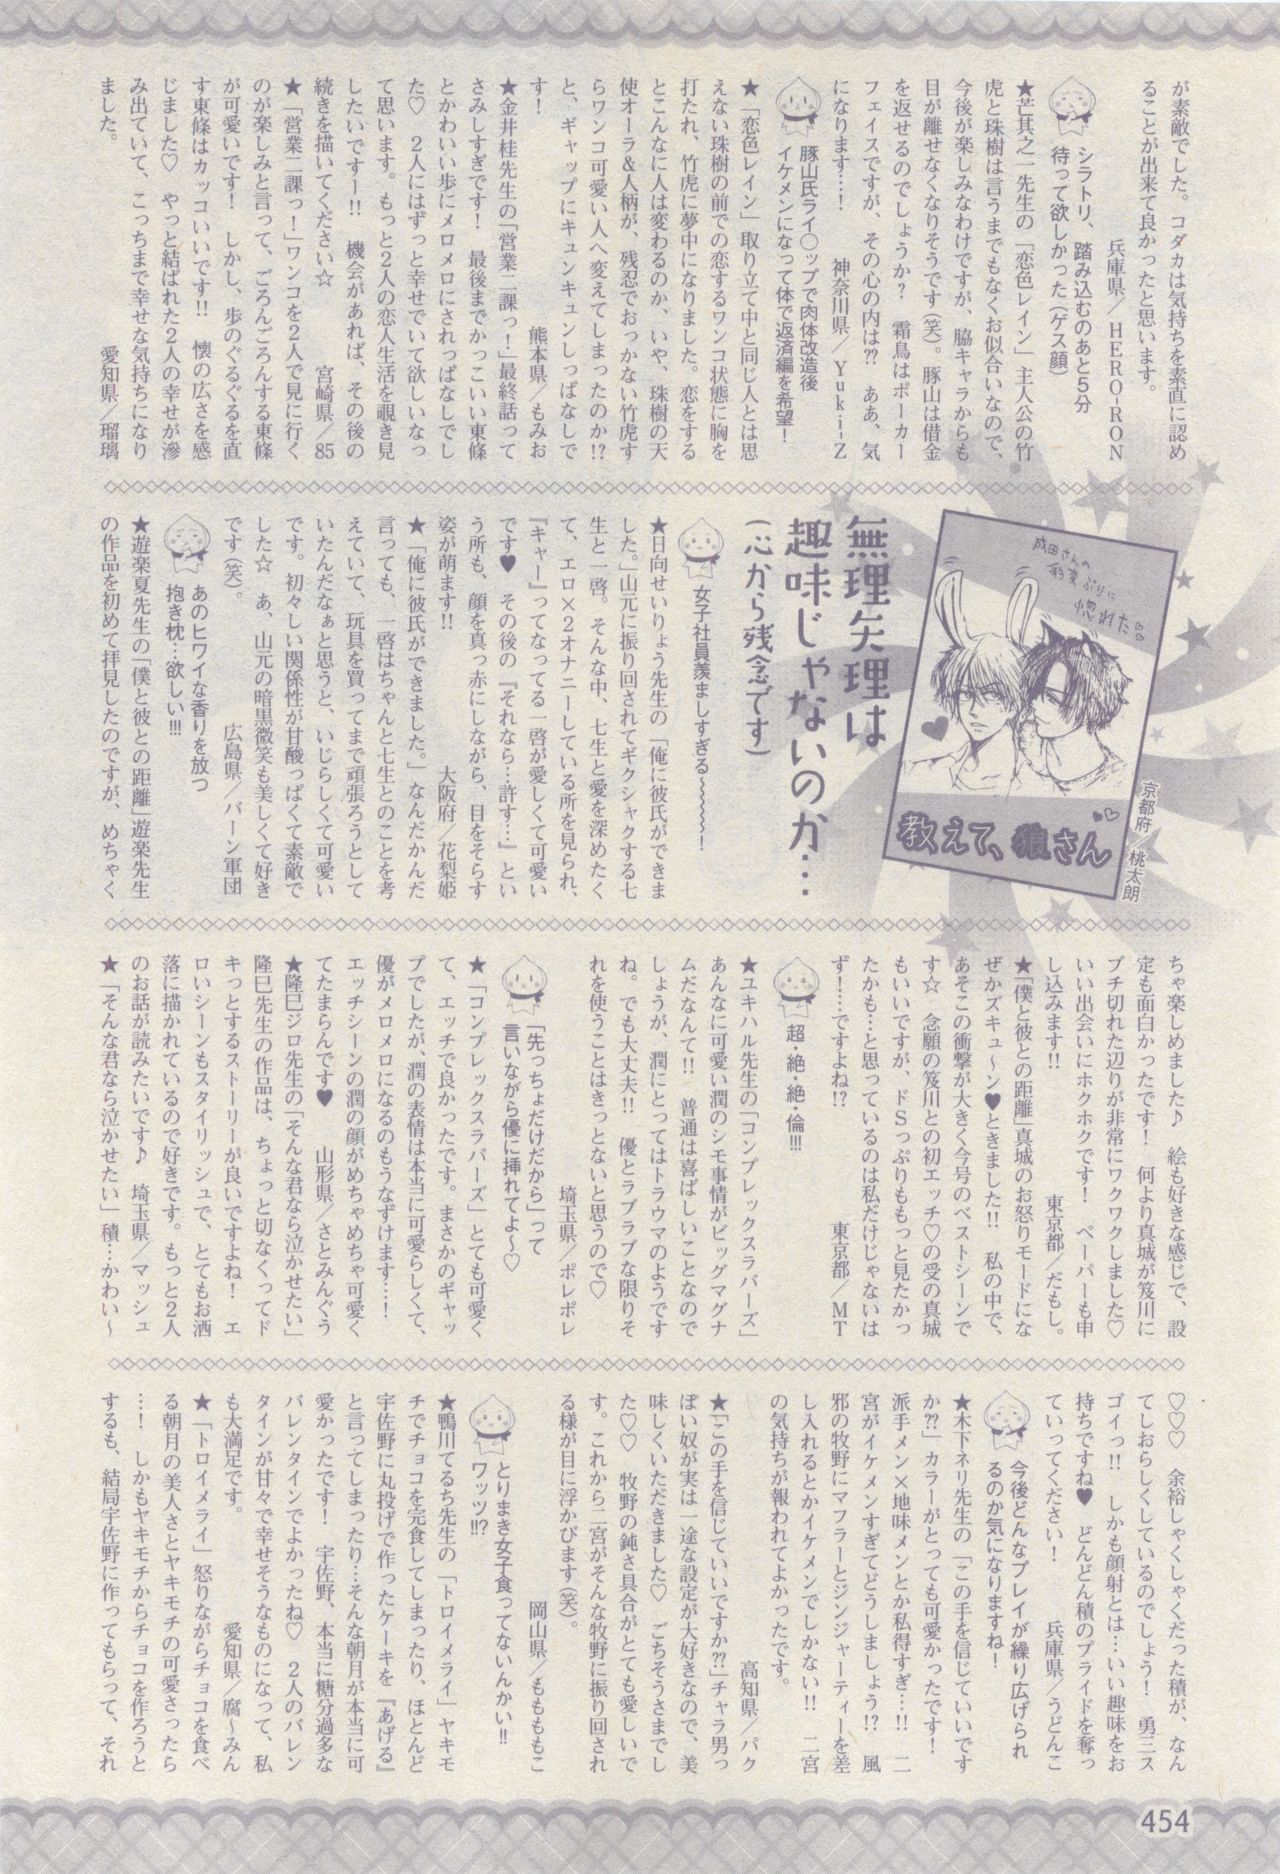 が素敵でした。コダカは気持ちを素直に認め
ることが出来て良かったと思います。
兵庫県／HERO-RON
シラトリ、踏み込むのあと5分
待って欲しかった(ゲス顔)
★芒其之一先生の「恋色レイン」主人公の竹
虎と珠樹は言うまでもなくお似合いなので、
今後が楽しみなわけですが、脇キャラからも
目が離せなくなりそうです(笑)。豚山は借金
を返せるのでしょうか？　霜鳥はポーカー
フェイスですが、その心の内は⁇　ああ、気
になります…！　神奈川県／Yuki-Z
豚山氏ライ〇ップで肉体改造後
イケメンになって体で返済編を希望！
★「恋色レイン」取り立て中と同じ人とは思
えない珠樹の前での恋するワンコ状態に胸を
打たれ、竹虎に夢中になりました。恋をする
とこんなに人は変わるのか、いや、珠樹の天
使オーラ&人柄が、残忍でおっかない竹虎す
らワンコ可愛い人へ変えてしまったのか!?
と、ギャップにキュンキュンしっぱなしで
す！　熊本県／もみお
★金井桂先生の「営業二課っ！」最終話って
さみしすぎです！　最後までかっこいい東條
とかわいい歩にメロメロにされっぱなしでし
た♡　2人にはずっと幸せでいて欲しいなっ
て思います。もっと2人の恋人生活を覗き見
したいですー!!　機会があれば、その後の
続きを描いてください☆　宮崎県／85
★「営業二課っ！」ワンコを2人で見に行く
のが楽しみと言って、ごろんごろんする東條
が可愛いです！　しかし、歩のぐるぐるを直
す東條はカッコいいです!!　懐の広さを感
じました♡　やっと結ばれた2人の幸せが滲
み出ていて、こっちまで幸せな気持ちになり
ました。　愛知県／瑠璃
成田さんの
惚れた♡♡
教えて、狼さん
京都府／桃太朗
無理矢理は
趣味じゃないのか…
(心から残念です)
女子社員羨ましすぎる〜〜〜〜〜！
★日向せいりょう先生の「俺に彼氏ができま
した。」山元に振り回されてギクシャクする七
生と一啓。そんな中、七生と愛を深めたく
て、エロ×2オナニーしている所を見られ、
『キャー』ってなってる一啓が愛しくて可愛い
です♥　その後の『それなら…許す…』とい
う所も、顔を真っ赤にしながら、目をそらす
姿が萌ます!!　大阪府／花梨姫
★「俺に彼氏ができました。」なんだかんだ
言っても、一啓はちゃんと七生とのことを考
えていて、玩具を買ってまで頑張ろうとして
いたんだなぁと思うと、いじらしくて可愛い
です。初々しい関係性が甘酸っぱくて素敵で
した☆　あ、山元の暗黒微笑も美しくて好き
です(笑)。　広島県／バーン軍団
あのヒワイな香りを放つ
抱き枕…欲しい!!!
★遊楽夏先生の「僕と彼との距離」遊楽先生
の作品を初めて拝見したのですが、めちゃく
ちゃ楽しめました♪　絵も好きな感じで、設
定も面白かったです！　何より真城が笈川に
ブチ切れた辺りが非常にワクワクしました♡
いい出会いにホクホクです！　ペーパーも申
し込みます!!　東京都／だもし。
★「僕と彼との距離」真城のお怒りモードにな
ぜかズキュ〜ン♥ときました!!　私の中で、
あそこの衝撃が大きく今号のベストシーンで
す☆　念願の笈川との初エッチ♡の受の真城
もいいですが、ドSっぷりももっと見たかっ
たかも…と思っているのは私だけじゃないは
ず！…ですよね!?　東京都／MT
超・絶・絶・倫!!!
★ユキハル先生の「コンプレックスラバーズ」
あんなに可愛い潤のシモ事情がビッグマグナ
ムだなんて!!　普通は喜ばしいことなので
しょうが、潤にとってはトラウマのようです
ね。でも大丈夫!!　優とラブラブな限りそ
れを使うことはきっとないと思うので♡
埼玉県／ポレポレ
「先っちょだけだから」って
言いながら優に挿れてよ〜♡
★「コンプレックスラバーズ」とても可愛く
て、エッチで良かったです。まさかのギャッ
プでしたが、潤の表情は本当に可愛らしくて、
優がメロメロになるのもうなずけます…！
エッチシーンの潤の顔がめちゃめちゃ可愛く
てたまらんです♥　山形県／さとみんぐう
★隆巳ジロ先生の「そんな君なら泣かせたい」
隆巳先生の作品は、ちょっと切なくってド
キっとするストーリーが良いですよね！　エ
ロいシーンもスタイリッシュで、とてもお洒
落に描かれているので好きです。もっと2人
のお話が読みたいです♪　埼玉県／マッシュ
★「そんな君なら泣かせたい」積…かわい〜
♡♡♡　余裕しゃくしゃくだった積が、なん
てしおらしくしているのでしょう！　勇三ス
ゴイっ!!　しかも顔射とは…いい趣味をお
持ちですね♥　どんどん積のプライドを奪っ
ていってください！　兵庫県／うどんこ
今後どんなプレイが繰り広げられ
るのか気になりますね！
★木下ネリ先生の「この手を信じていいです
か⁇」カラーがとっても可愛かったです！
派手メン×地味メンとか私得すぎ…!!　二
宮がイケメンすぎてどうしましょう!?　風
邪の牧野にマフラーとジンジャーティーを差
し入れるとかイケメンでしかない!!　二宮
の気持ちが報われてよかったです。
高知県／パク
★「この手を信じていいですか⁇」チャラ男っ
ぽい奴が実は一途な設定が大好きなので、美
味しくいただきました♡　ごちそうさまでし
た♡♡　牧野の鈍さ具合がとても愛しいで
す。これから二宮がそんな牧野に振り回され
る様が目に浮かびます(笑)。
岡山県／もももも​こ
とりまき女子食ってないんかい!!
ワッツ!!?
★鴨川てるち先生の「トロイメライ」ヤキモ
チでチョコを完食してしまったり、ほとんど
宇佐野に丸投げで作ったケーキを『あげる』
と言ってしまったり…そんな朝月が本当に可
愛かったです！　宇佐野、本当に糖分過多な
バレンタインでよかったね♡　2人のバレン
タインが甘々で幸せそうなものになって、私
も大満足です。　愛知県／腐〜みん
★「トロイメライ」怒りながらチョコを食べ
る朝月の美人さとヤキモチの可愛さったら
…！　しかもヤキモチからチョコを作ろうと
するも、結局宇佐野に作ってもらって、それ
454